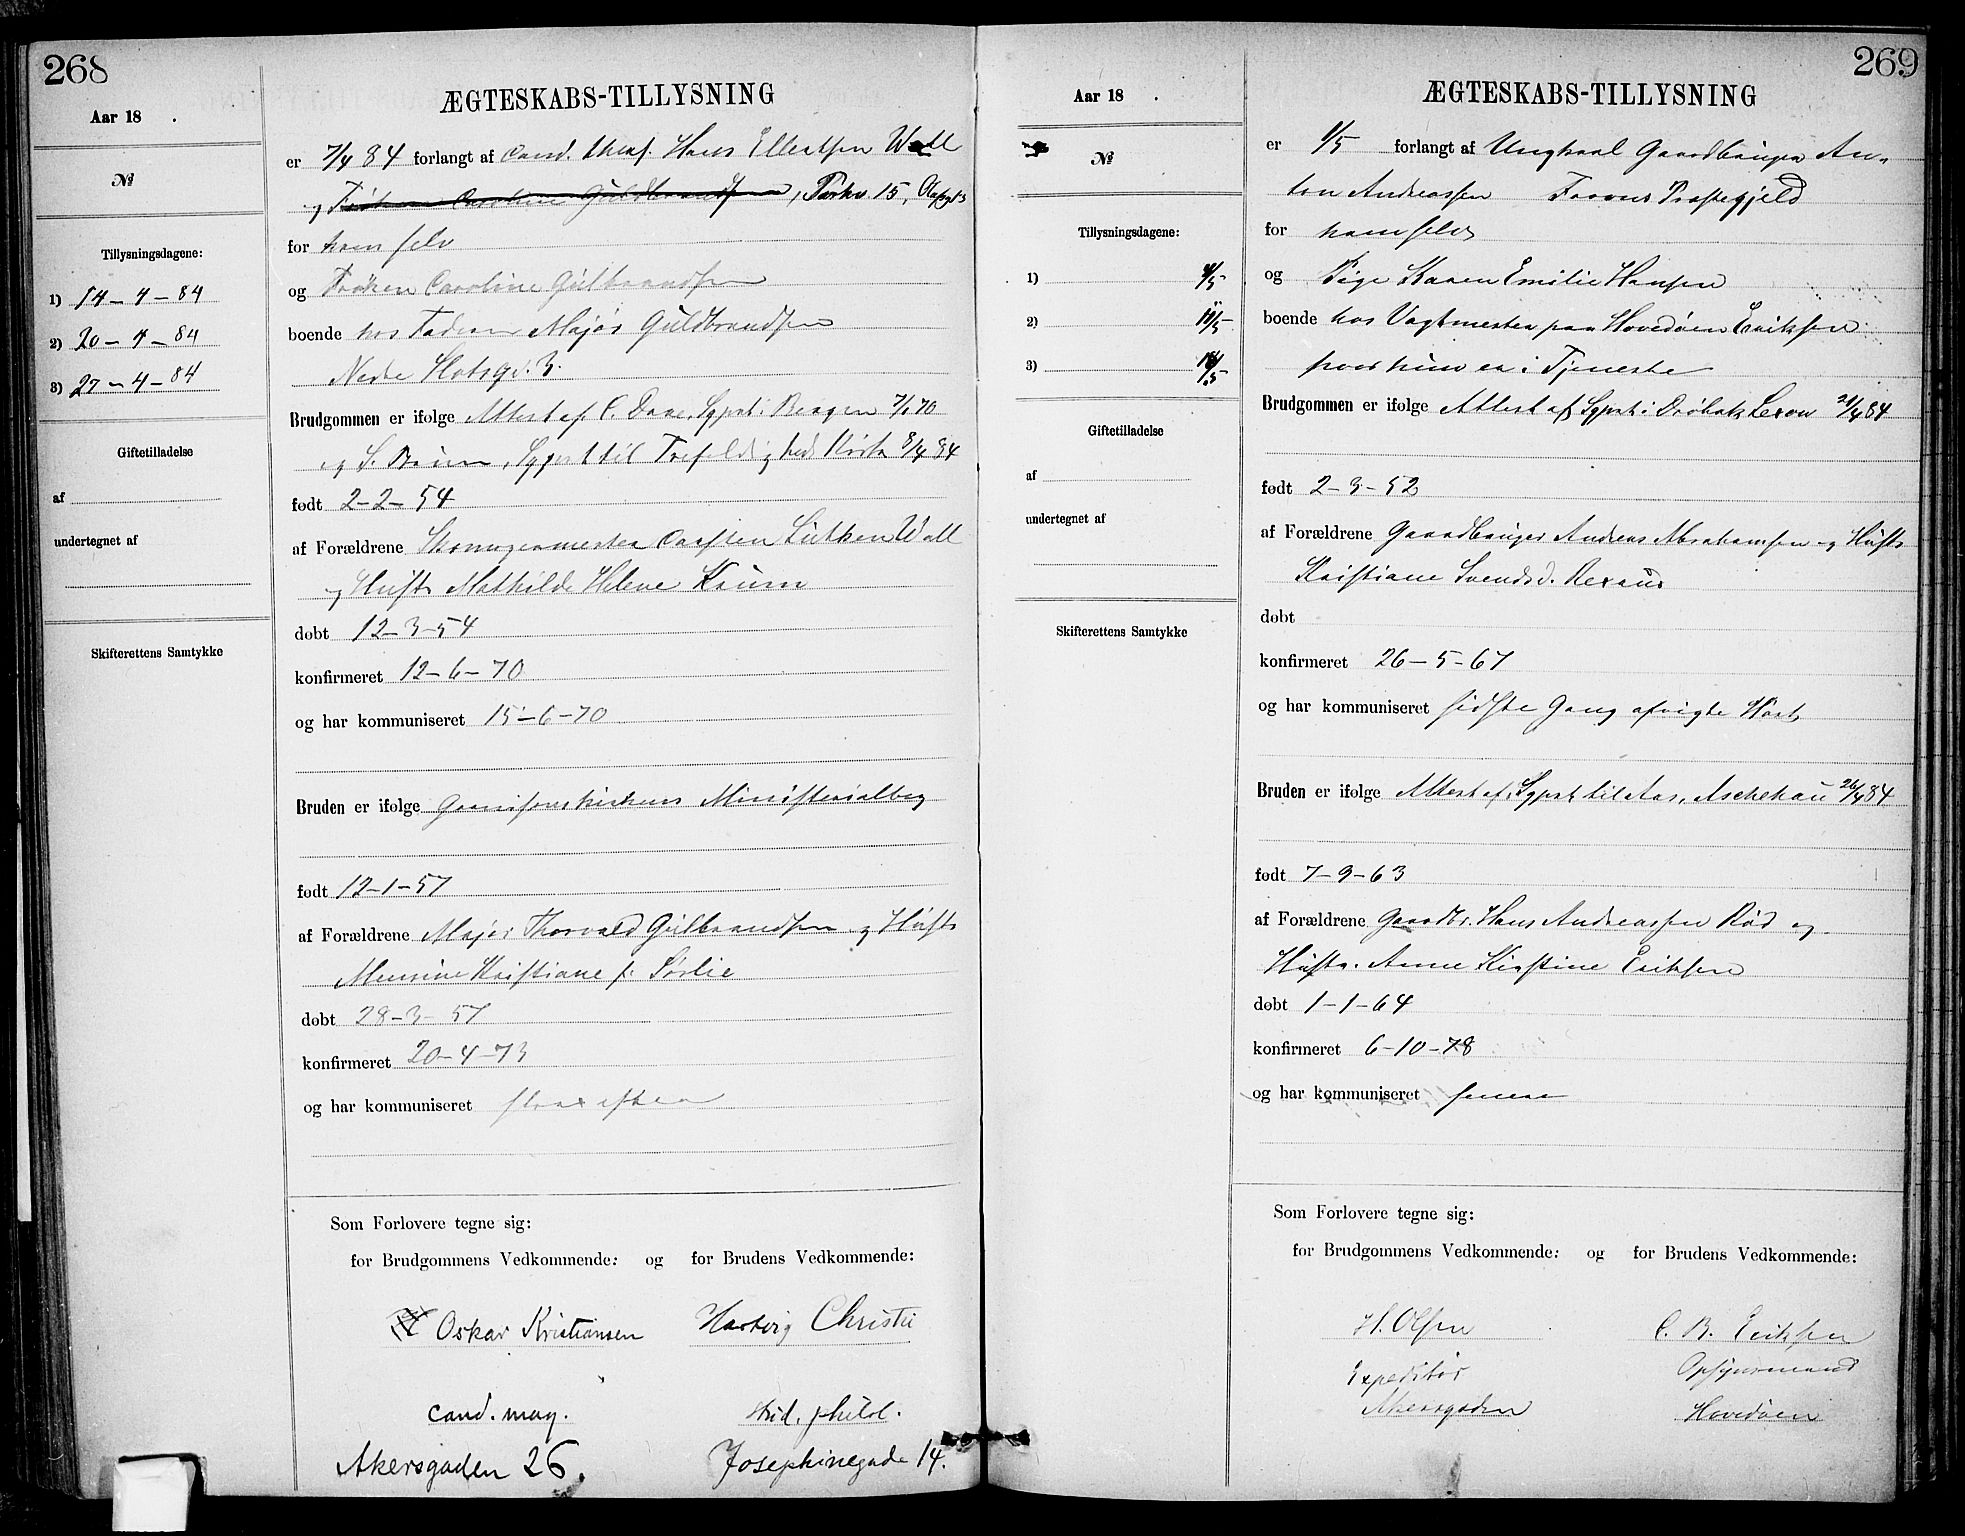 268
Aar 18 .
№
Tillysningsdagene:
1) 14-4-84
2) 20-4-84
3) 27-4-84
Giftetilladelse
af
undertegnet af
Skifterettens Samtykke
ÆGTESKABS-TILLYSNING
er 7/4 84 forlangt af Cand. theol. Hans Ellertsen Wall
og Frøken Caroline Guldbrandsen, Parkv. 15,
for ham selv
og Frøken Caroline Gulbrandsen
boende hos Faderen Major Guldbrandsen
Nedre Slotsgd. 3.
Brudgommen er ifølge Attest af C. Daae, Sgprst i Bergen 7/1 70
og S. Bruun, Sgprst til Trefoldigheds Kirke 8/4 84
født 2-2-54
af Forældrene Carsten Lütken Wall
og Hustr Mathilde Helene Krum
døbt 12-3-54
konfirmeret 12-6-70
og har kommuniseret 15-6-70
Bruden er ifølge Garnisonskirkens Ministerialbog
født 12-1-57
af Forældrene Major Thorvald Gulbrandsen og Hustr
Kristiane f. Sørlie
døbt 28-3-57
konfirmeret 20-4-73
og har kommuniseret strax efter
Som Forlovere tegne sig:
for Brudgommens Vedkommende: og for Brudens Vedkommende:
Oskar Kristiansen Hartvig Christie
cand. mag. stud. philol.
Akersgaden 26. Josephinegade 14.
269
Aar 18 .
№
Tillysningsdagene:
1) 4/5
2) 11/5
3) 18/5
Giftetilladelse
af
undertegnet af
Skifterettens Samtykke
ÆGTESKABS-TILLYSNING
er 1/5 forlangt af Ungkarl Gaardbruger An-
ton Andreassen Præstegjeld
for ham selv
og Pige Karen Emilie Hansen
boende hos Vagtmester paa Hovedøen Eriksen
hvor hun er i Tjeneste
Brudgommen er ifølge Attest af Sgprst i Drøbak Lexow 21/4 84
født 2-3-52
af Forældrene Gaardbruger Andreas Abrahamsen og Hustr
Kristiane Svendsd.
døbt
konfirmeret 26-5-67
og har kommuniseret sidste Gang afvigte Høst
Bruden er ifølge Attest af Sgprst til Aas, Aschehou 26/4 84
født 7-9-63
af Forældrene Gaardbr. Hans Andreassen Rød og
Hustr. Anne Kirstine Eriksen
døbt 1-1-64
konfirmeret 6-10-78
og har kommuniseret senere
Som Forlovere tegne sig:
for Brudgommens Vedkommende: og for Brudens Vedkommende:
H. Olsen C. B. Eriksen
Expeditør Opsynsmand
Akersgaden Hovedøen